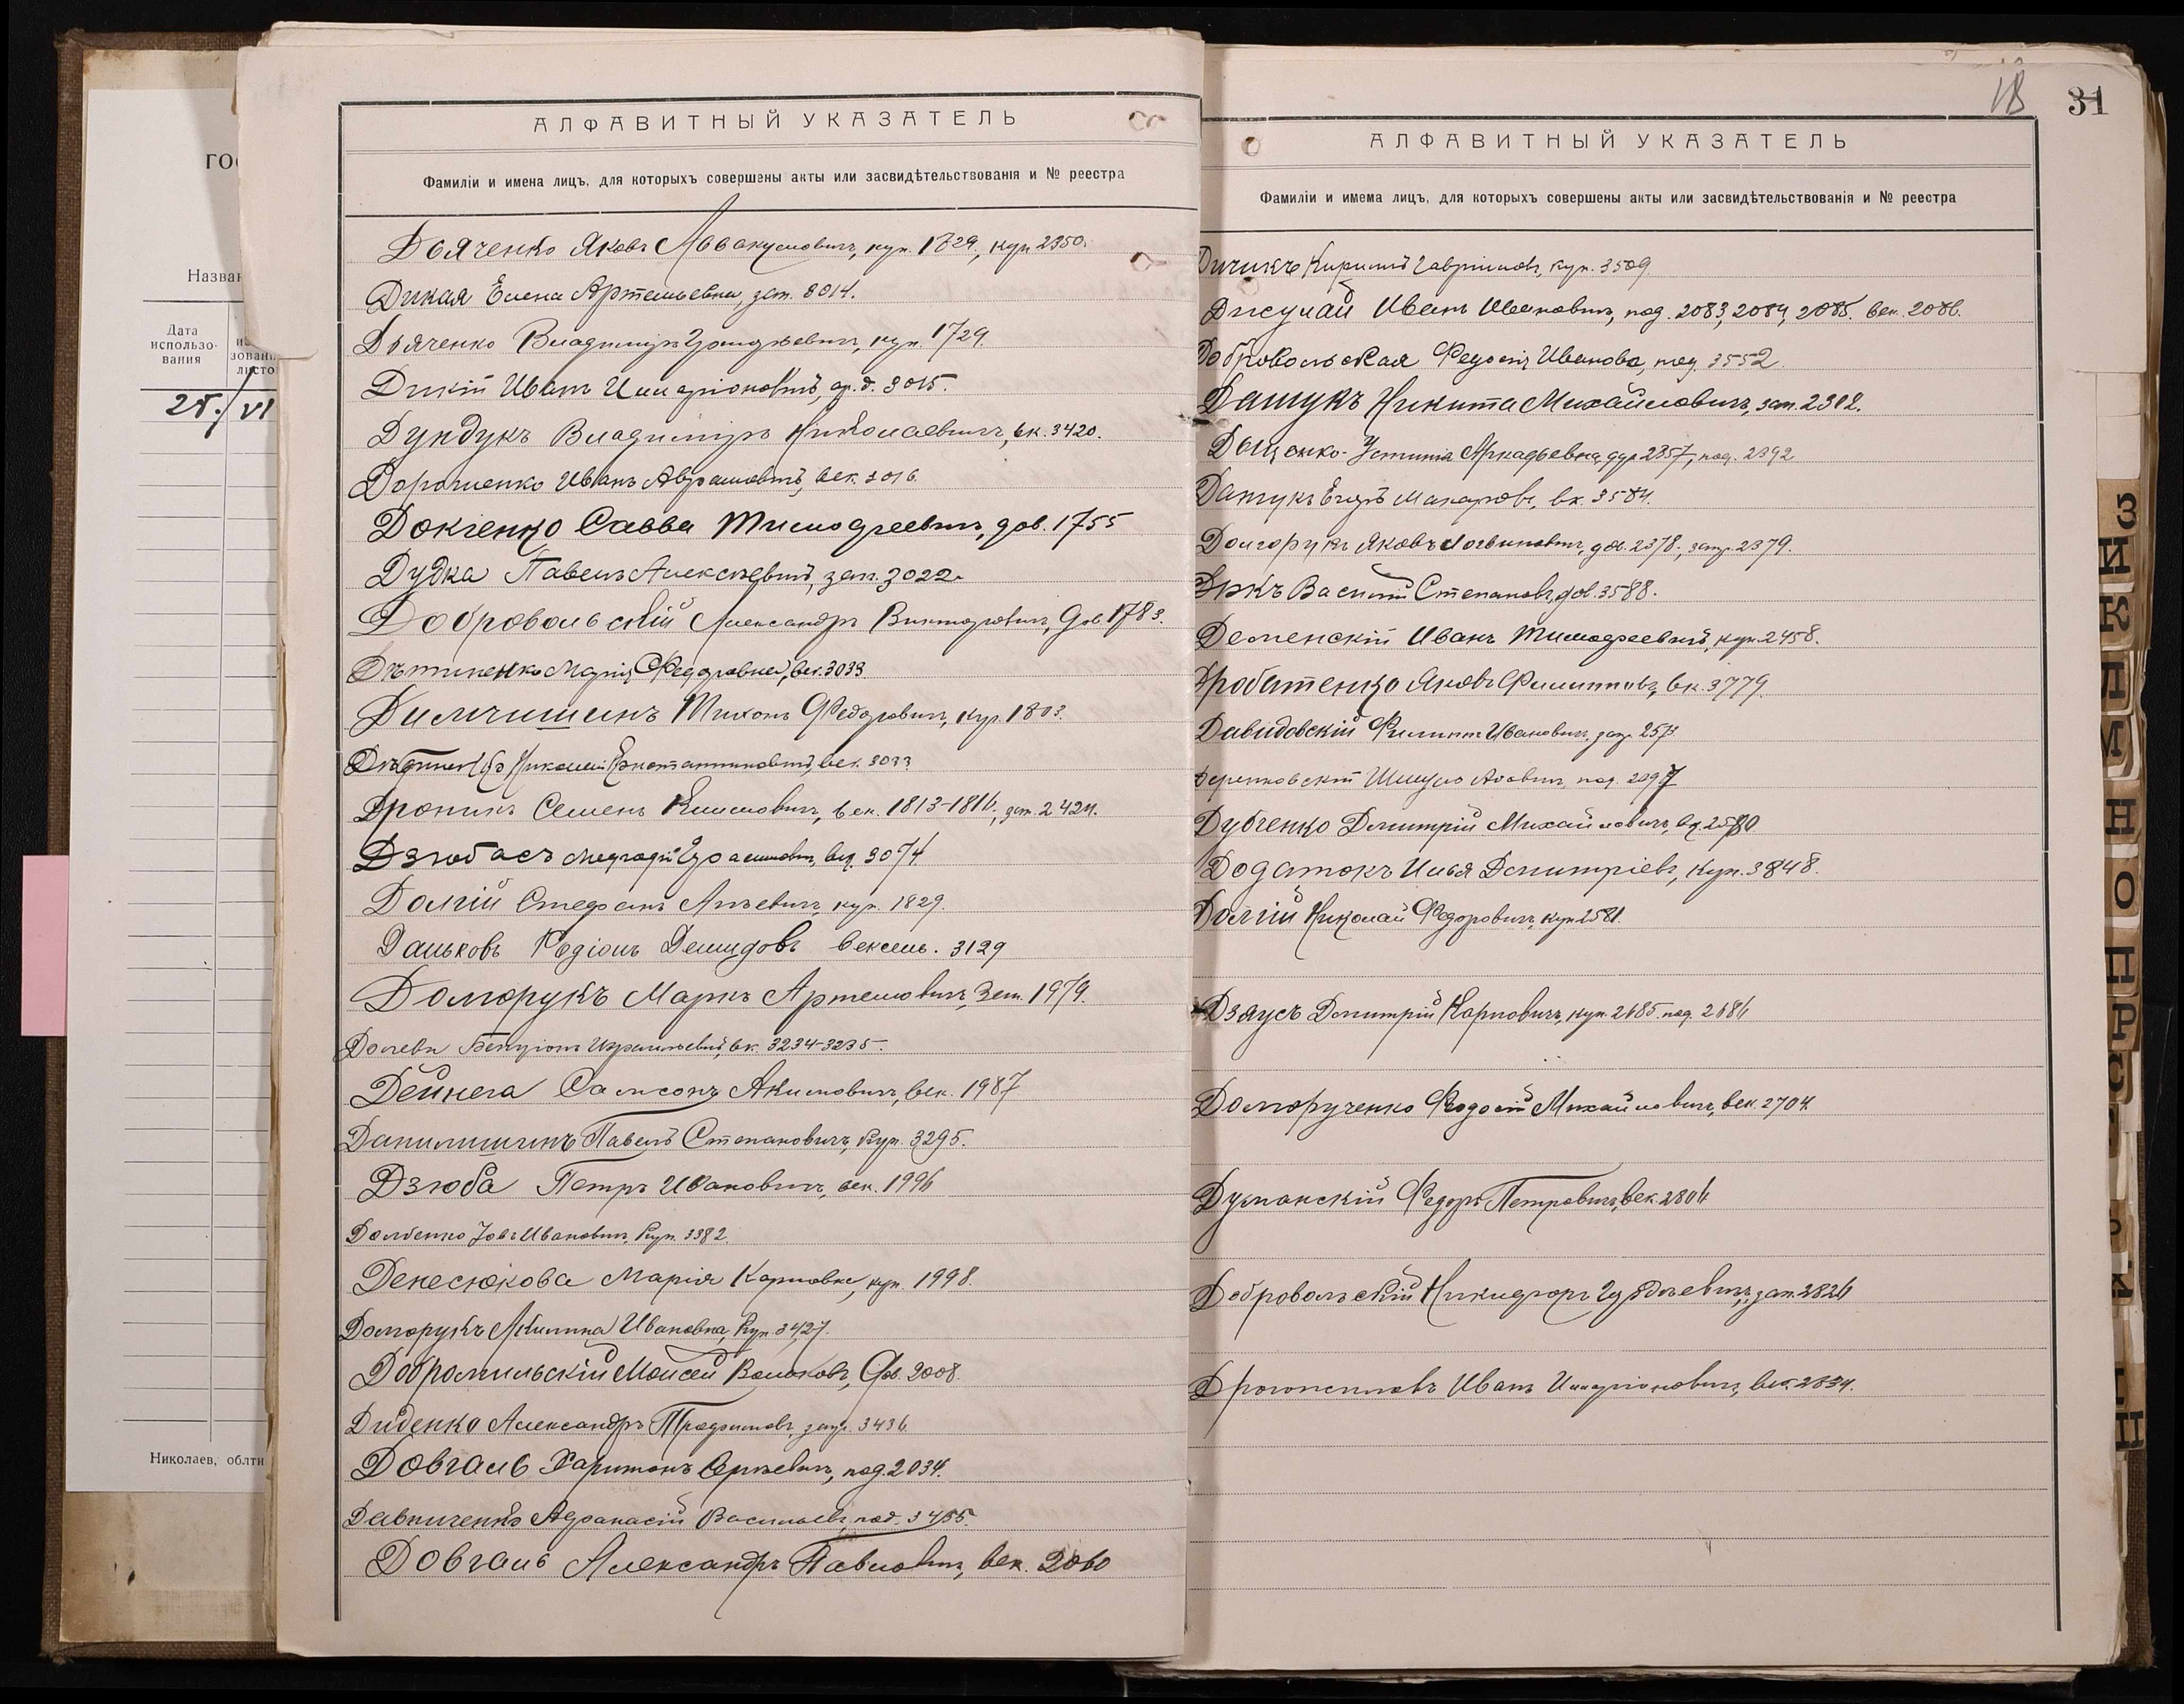 ГО
Назван
Дата
использо-
вания
зовани
листо
25/VI
Николаев, облти
АЛФАВИТНЫЙ УКАЗАТЕЛЬ
Фамиліи и имена лицъ, для которыхъ совершены акты или засвидѣтельствованія и № реестра
Дьяченко Яковъ Аввакумовичъ, куп. 1729., куп. 2350.
Дикая Елена Артемьевна, зап. 3014.
Дьяченко Владимиръ куп. 1729.
Дикій Иванъ Илларіоновичъ, ар. д. 3015.
Дундукъ Владиміръ Николаевичъ, вк. 3420.
Дорошенко Иванъ Абрамовичъ, век. 3016.
Докіенко Савва Тимофеевичъ, дов. 1755
Дудка Павелъ Алексѣевичъ, зап. 3022.
Добровольскій Александръ Викторовичъ, Дов. 1783.
Дѣтиненко Марія Федоровна, век. 3033
Димчишинъ Тихонъ Федоровичъ, куп. 1803.
Николай Константиновичъ, век. 3033
Дроникъ Семенъ Климовичъ, век. 1813-1816., зап. 2424.
Дзюбасъ Герасимовичъ, вк. 3074.
Долгій Стефанъ куп. 1829.
Даньковъ Родіонъ Демидовъ вексель. 3129
Долгорукъ Маркъ Артемовичъ, Зап. 1979.
Долевъ Бенціонъ Израилевичъ, вк. 3234-3235.
Дейнега Самсонъ Акимовичъ, век. 1987
Данилишинъ Павелъ Степановичъ, куп. 3295.
Дзюба Петръ Ивановичъ, век. 1996
Долбенко Іовъ Ивановичъ, куп. 3382.
Денесюкова Марія Карповна, куп. 1998.
Долгорукъ Акилина Ивановна, куп. 3427.
Добромильскій Моисей Волковъ, Дов. 2008.
Диденко Александръ Трофимовъ, зап. 3436.
Довгаль Харитонъ Сергѣевичъ, под. 2034.
Давниченко Афанасій Васильевъ, под. 3455.
Довгаль Александръ Павловичъ, век. 2060
18
31
АЛФАВИТНЫЙ УКАЗАТЕЛЬ
Фамиліи и имема лицъ, для которыхъ совершены акты или засвидѣтельствованія и № реестра
Дичикъ Кирилъ Гавриловъ, куп. 3509
Джулай Иванъ Ивановичъ, под. 2083, 2084, 2085. век. 2086.
Добровольская Федосія Иванова, под. 3552.
Дашукъ Никита Михайловичъ, зап. 2302.
Дыщенко Устинія Аркадьевна, 2357, под. 2392
Дашукъ Егоръ Макаровъ, вк. 3584.
Долгорукъ Яковъ Логвиновичъ, дов. 2378., запр. 2379.
Дркъ Василій Степановъ, дов. 3588.
Деменскій Иванъ Тимофеевичъ, куп. 2458.
Дробатенко Яковъ Филипповъ, вк. 3779.
Давидовскій Филиппъ Ивановичъ, зап. 2573
Деренковскій под. 2097
Дубченко Дмитрій Михайловичъ, вк. 2580
Додатокъ Илья Дмитріевъ, Куп. 3848.
Долгій Николай Федоровичъ, куп. 2581.
Дзяусъ Дмитрій Карповичъ, куп. 2685. под. 2686
Долгорученко Федосій Михайловичъ, век. 2704.
Дульнанскій Федоръ Петровичъ, век. 2806.
Добровольскій Никифоръ зап. 2826
Иванъ Илларіоновичъ, век. 2834.
З
И
К
Л
М
Н
О
П
Р
С